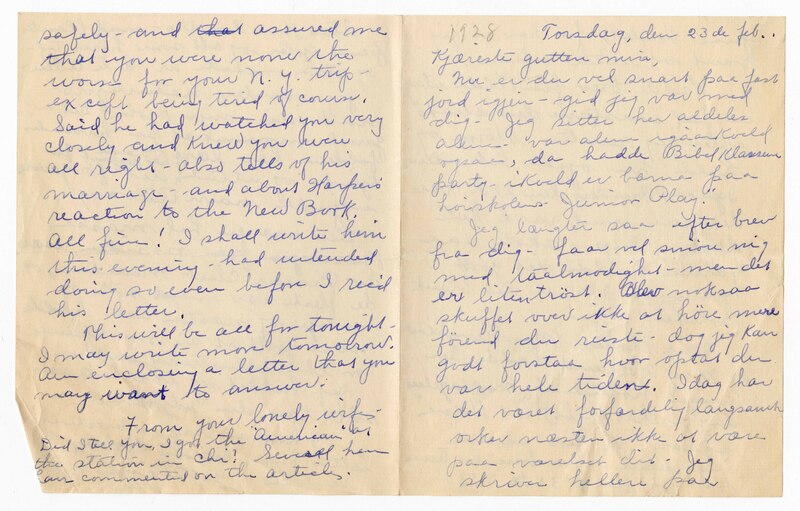 safely - and that assured me
that you were none the
worse for your N. Y. trip -
except being tired of course.
Said he had watched you very
closely and knew you were
all right - also tells of his
marriage - and about Harpers
reaction to the New Book.
All fine! I shall write him
this evening - had intended
doing so even before I rec'd
his letter.
This will be all for tonight -
I may write more tomorrow.
Am enclosing a letter that you
may want to answer.
From your lonely wife -
Did I tell you, I got the "American" at
the station in Chi! Several here
have commented on the articles.
1928
Torsdag, den 23de feb..
Kjæreste gutten min,
Nu er du vel snart paa fast
jord igjen - gid jeg var med
dig - Jeg sitter her aldeles
alene - var alene igaarkveld
ogsaa, da hadde Bibel Klassen
party - ikveld er barna paa
høiskolens Junior Play!
Jeg længter saa efter brev
fra dig - faar vel smöre mig
med taalmodighet - men det
er liten tröst. Blev noksaa
skuffet over ikke at höre mere
förend du reiste - dog jeg kan
godt forstaa hvor optat du
var hele tiden. Idag har
det været forfærdelig langsomt
orker næsten ikke at være
paa værelset dit - Jeg
skriver hellere paa